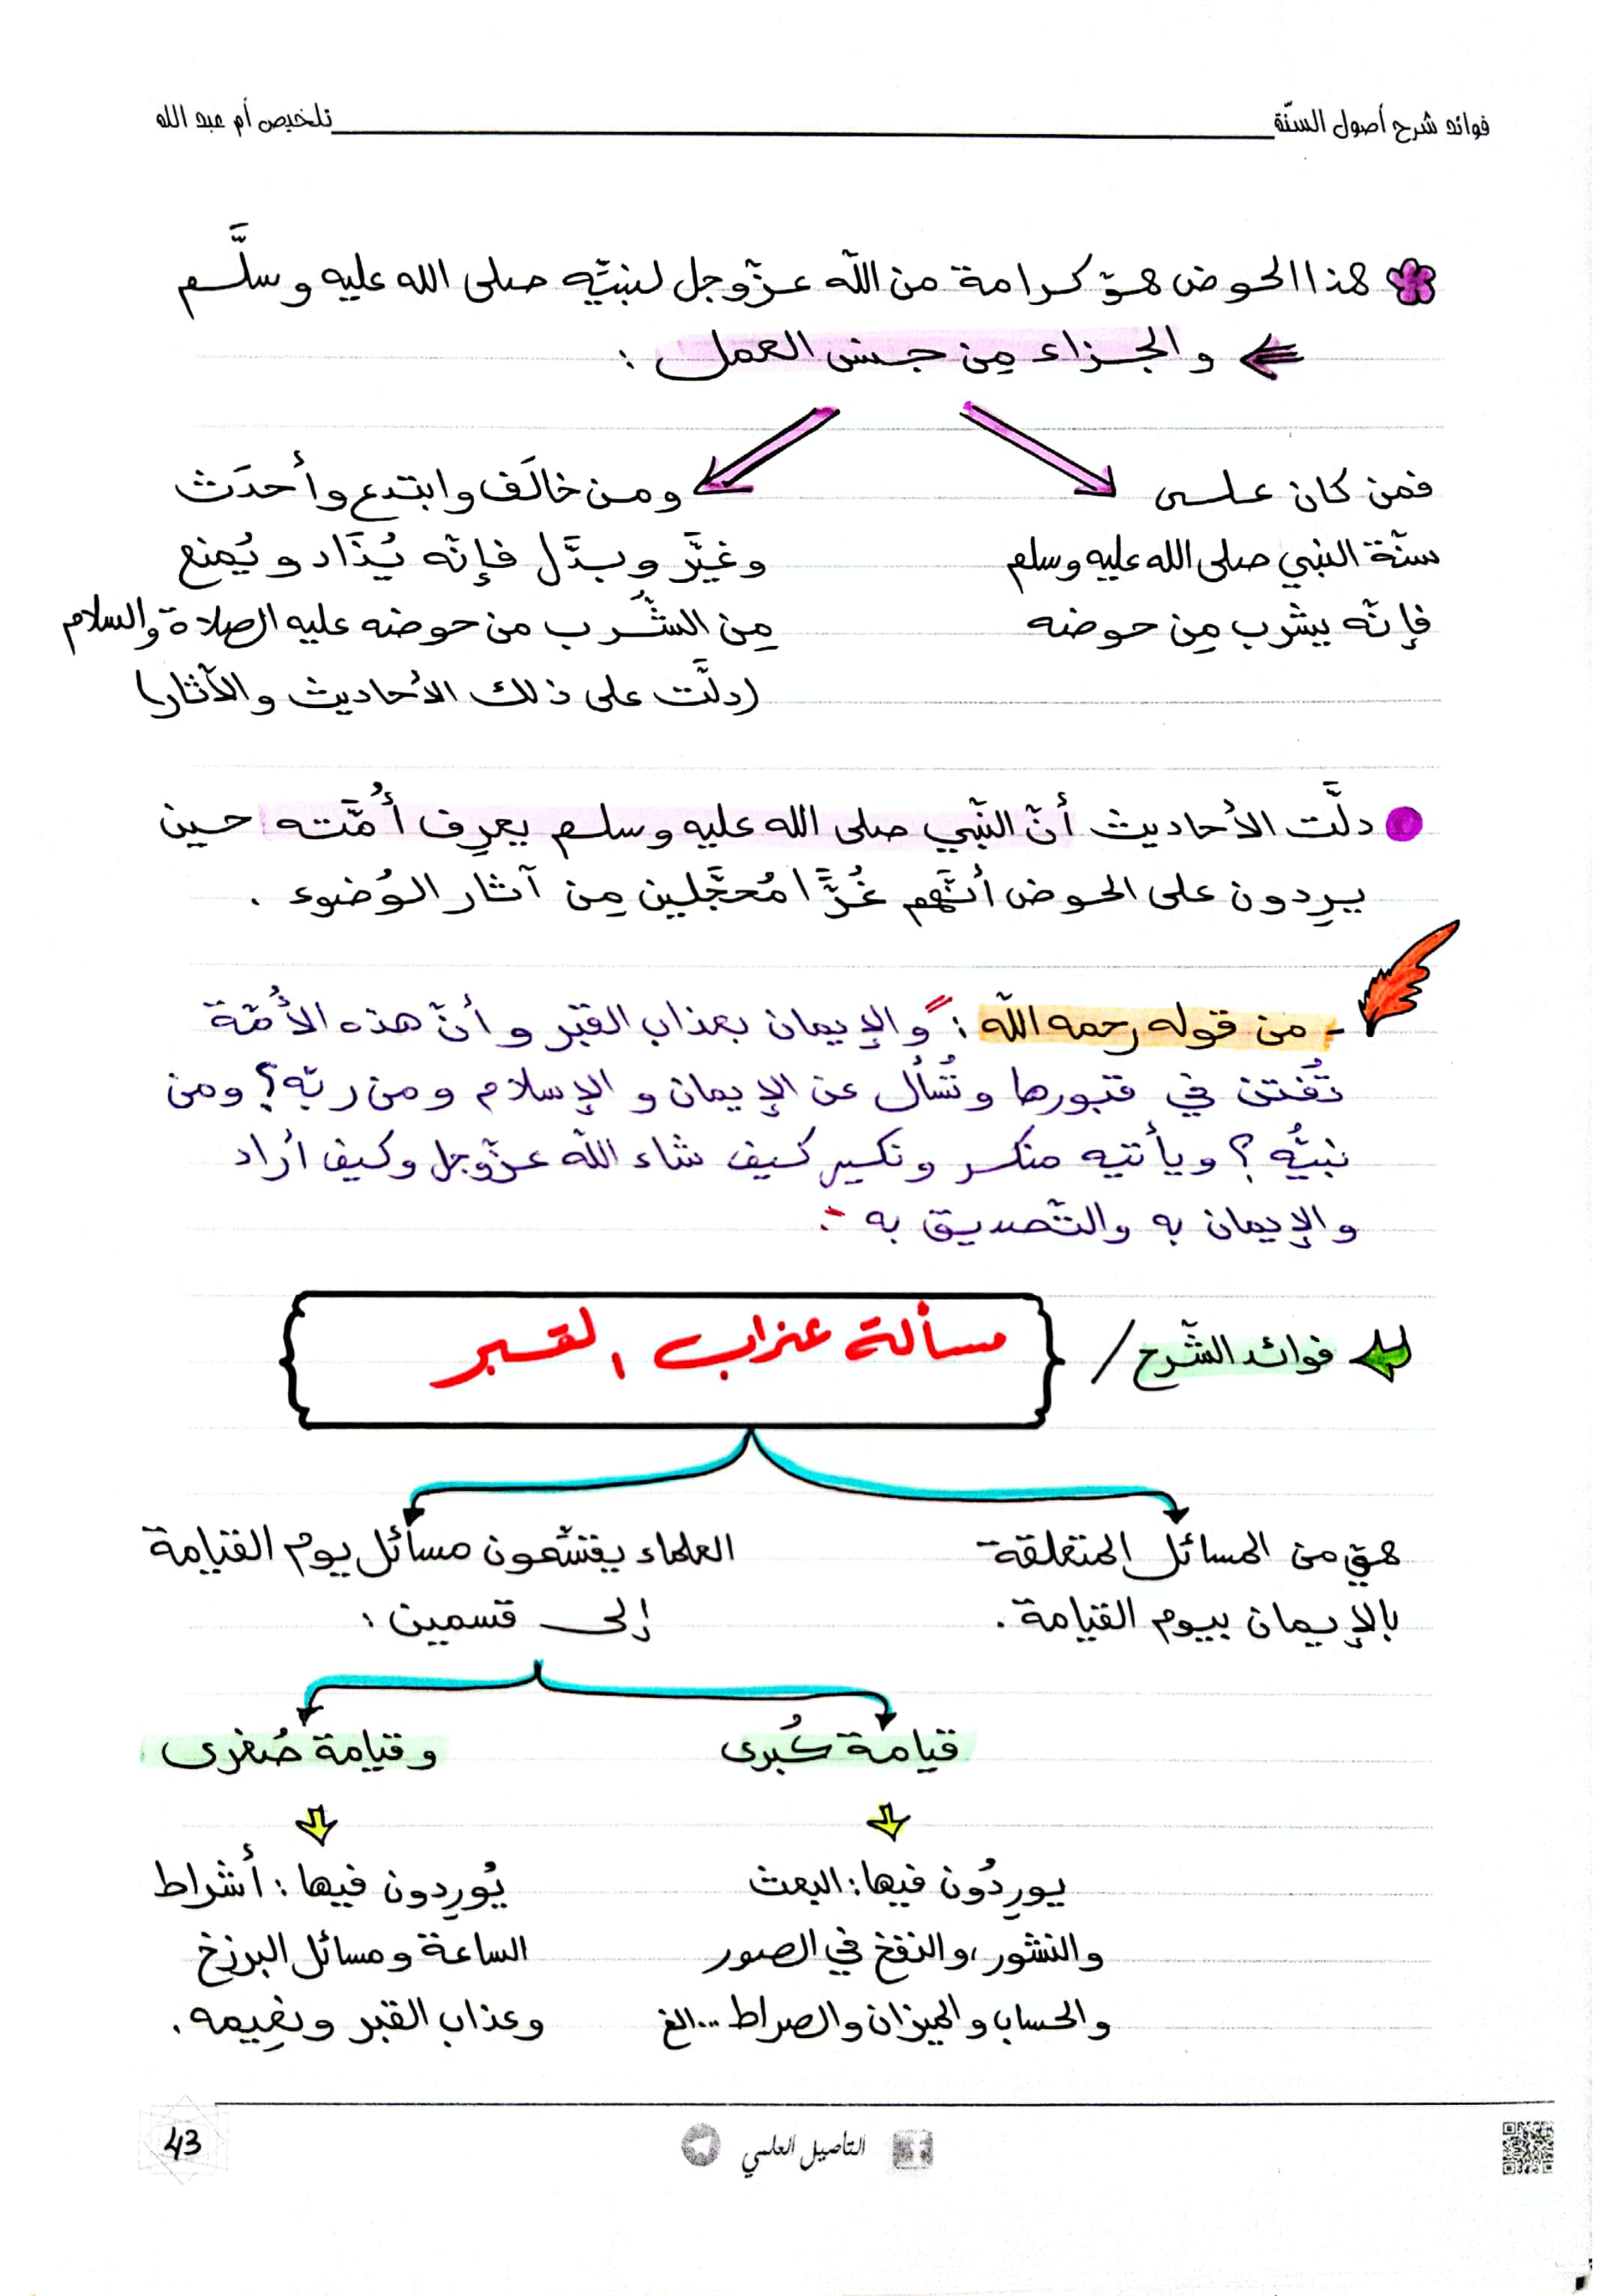 فوائد شرح أصول السنّة
تلخيص أم عبد الله
هذا الحوض هوّ كرامة من اللّه عزّوجل لنبيّه صلى الله عليه وسلَّم
والجزاء مِن جنس العمل :
فمن كان على
سنّة النبي صلى الله عليه وسلم
فإنّه يشرب مِن حوضه
ومن خالَف وابتدع وأحدَث
وغيَّر وبدَّل فإنّه يُذَاد ويُمنع
مِن الشُّرب من حوضه عليه الصلاة والسلام
(دلَّت على ذلك الأحاديث والآثار)
دلَّت الأحاديث أنّ النّبي صلى الله عليه وسلم يعرِف أُمَّته حين
يرِدون على الحوض أنَّهم غُرًّا مُحجَّلين مِن آثار الوُضوء .
- من قوله رحمه اللّه : "والإيمان بعذاب القبر وأنّ هذه الأُمّة
تُفتن في قبورها وتُسأل عن الإيمان والإسلام ومن ربّه؟ ومن
نبيُّه؟ ويأتيه منكر ونكير كيف شاء اللّه عزّوجل وكيف أراد
والإيمان به والتّصديق به".
فوائد الشّرح /
مسألة عذاب القبر
هيّ من المسائل المتعلقة
بالإيمان بيوم القيامة .
العلماء يقسّمون مسائل يوم القيامة
إلى قسمين :
قيامة كُبرى
وقيامة صُغرى
يورِدُون فيها : البعث
والنشور ، والنفخ في الصور
والحساب والميزان والصراط ...الخ
يُورِدون فيها : أشراط
الساعة ومسائل البرزخ
وعذاب القبر ونعِيمه .
التأصيل العلمي
43